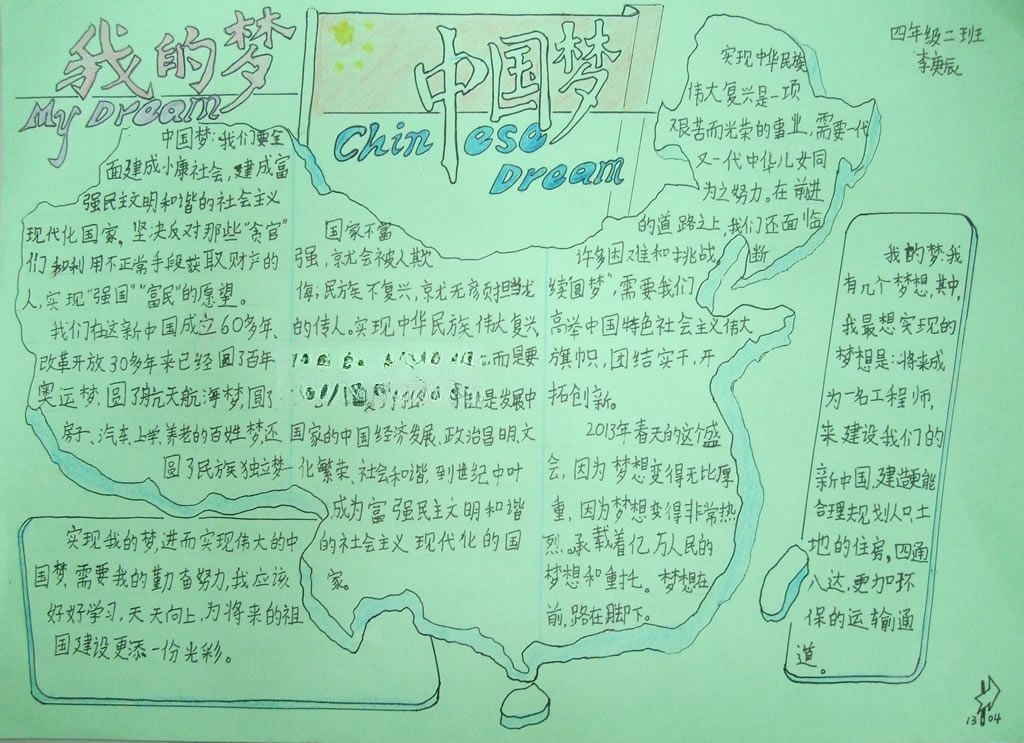 我的梦
My Dream
中国梦
Chinese
Dream
四年级二班
李庚辰
中国梦:我们要全
面建成小康社会,建成富
强民主文明和谐的社会主义
现代化国家,坚决反对那些“贪官”
们和利用不正常手段获取财产的
人,实现“强国”“富民”的愿望。
我们在这新中国成立60多年,
改革开放30多年来已经圆了百年
奥运梦,圆了航天航海梦,圆了
房子、汽车、上学、养老的百姓梦,还
圆了民族独立梦
国家不富
强,就会被人欺
侮;民族不复兴,就无彦页担当龙
的传人。实现中华民族伟大复兴
而是要
是发展中
国家的中国经济发展、政治昌明、文
化繁荣、社会和谐,到世纪中叶
成为富强民主文明和谐
的社会主义现代化的国
家。
实现中华民族
伟大复兴是一项
艰苦而光荣的事业,需要一代
又一代中华儿女同
为之努力。在前进
的道路之上,我们还面临
许多困难和挑战,断
续圆梦”,需要我们
高举中国特色社会主义伟大
旗帜,团结实干,开
拓创新。
2013年春天的这个盛
会,因为梦想变得无比厚
重,因为梦想变得非常热
烈。承载着亿万人民的
梦想和重托。梦想在
前,路在脚下。
我的梦:我
有几个梦想,其中,
我最想实现的
梦想是:将来成
为一名工程师,
来建设我们的
新中国,建造更能
合理规划人口、土
地的住房,四通
八达,更加环
保的运输通
道。
实现我的梦,进而实现伟大的中
国梦,需要我的勤奋努力,我应该
好好学习,天天向上,为将来的祖
国建设更添一份光彩。
13 04